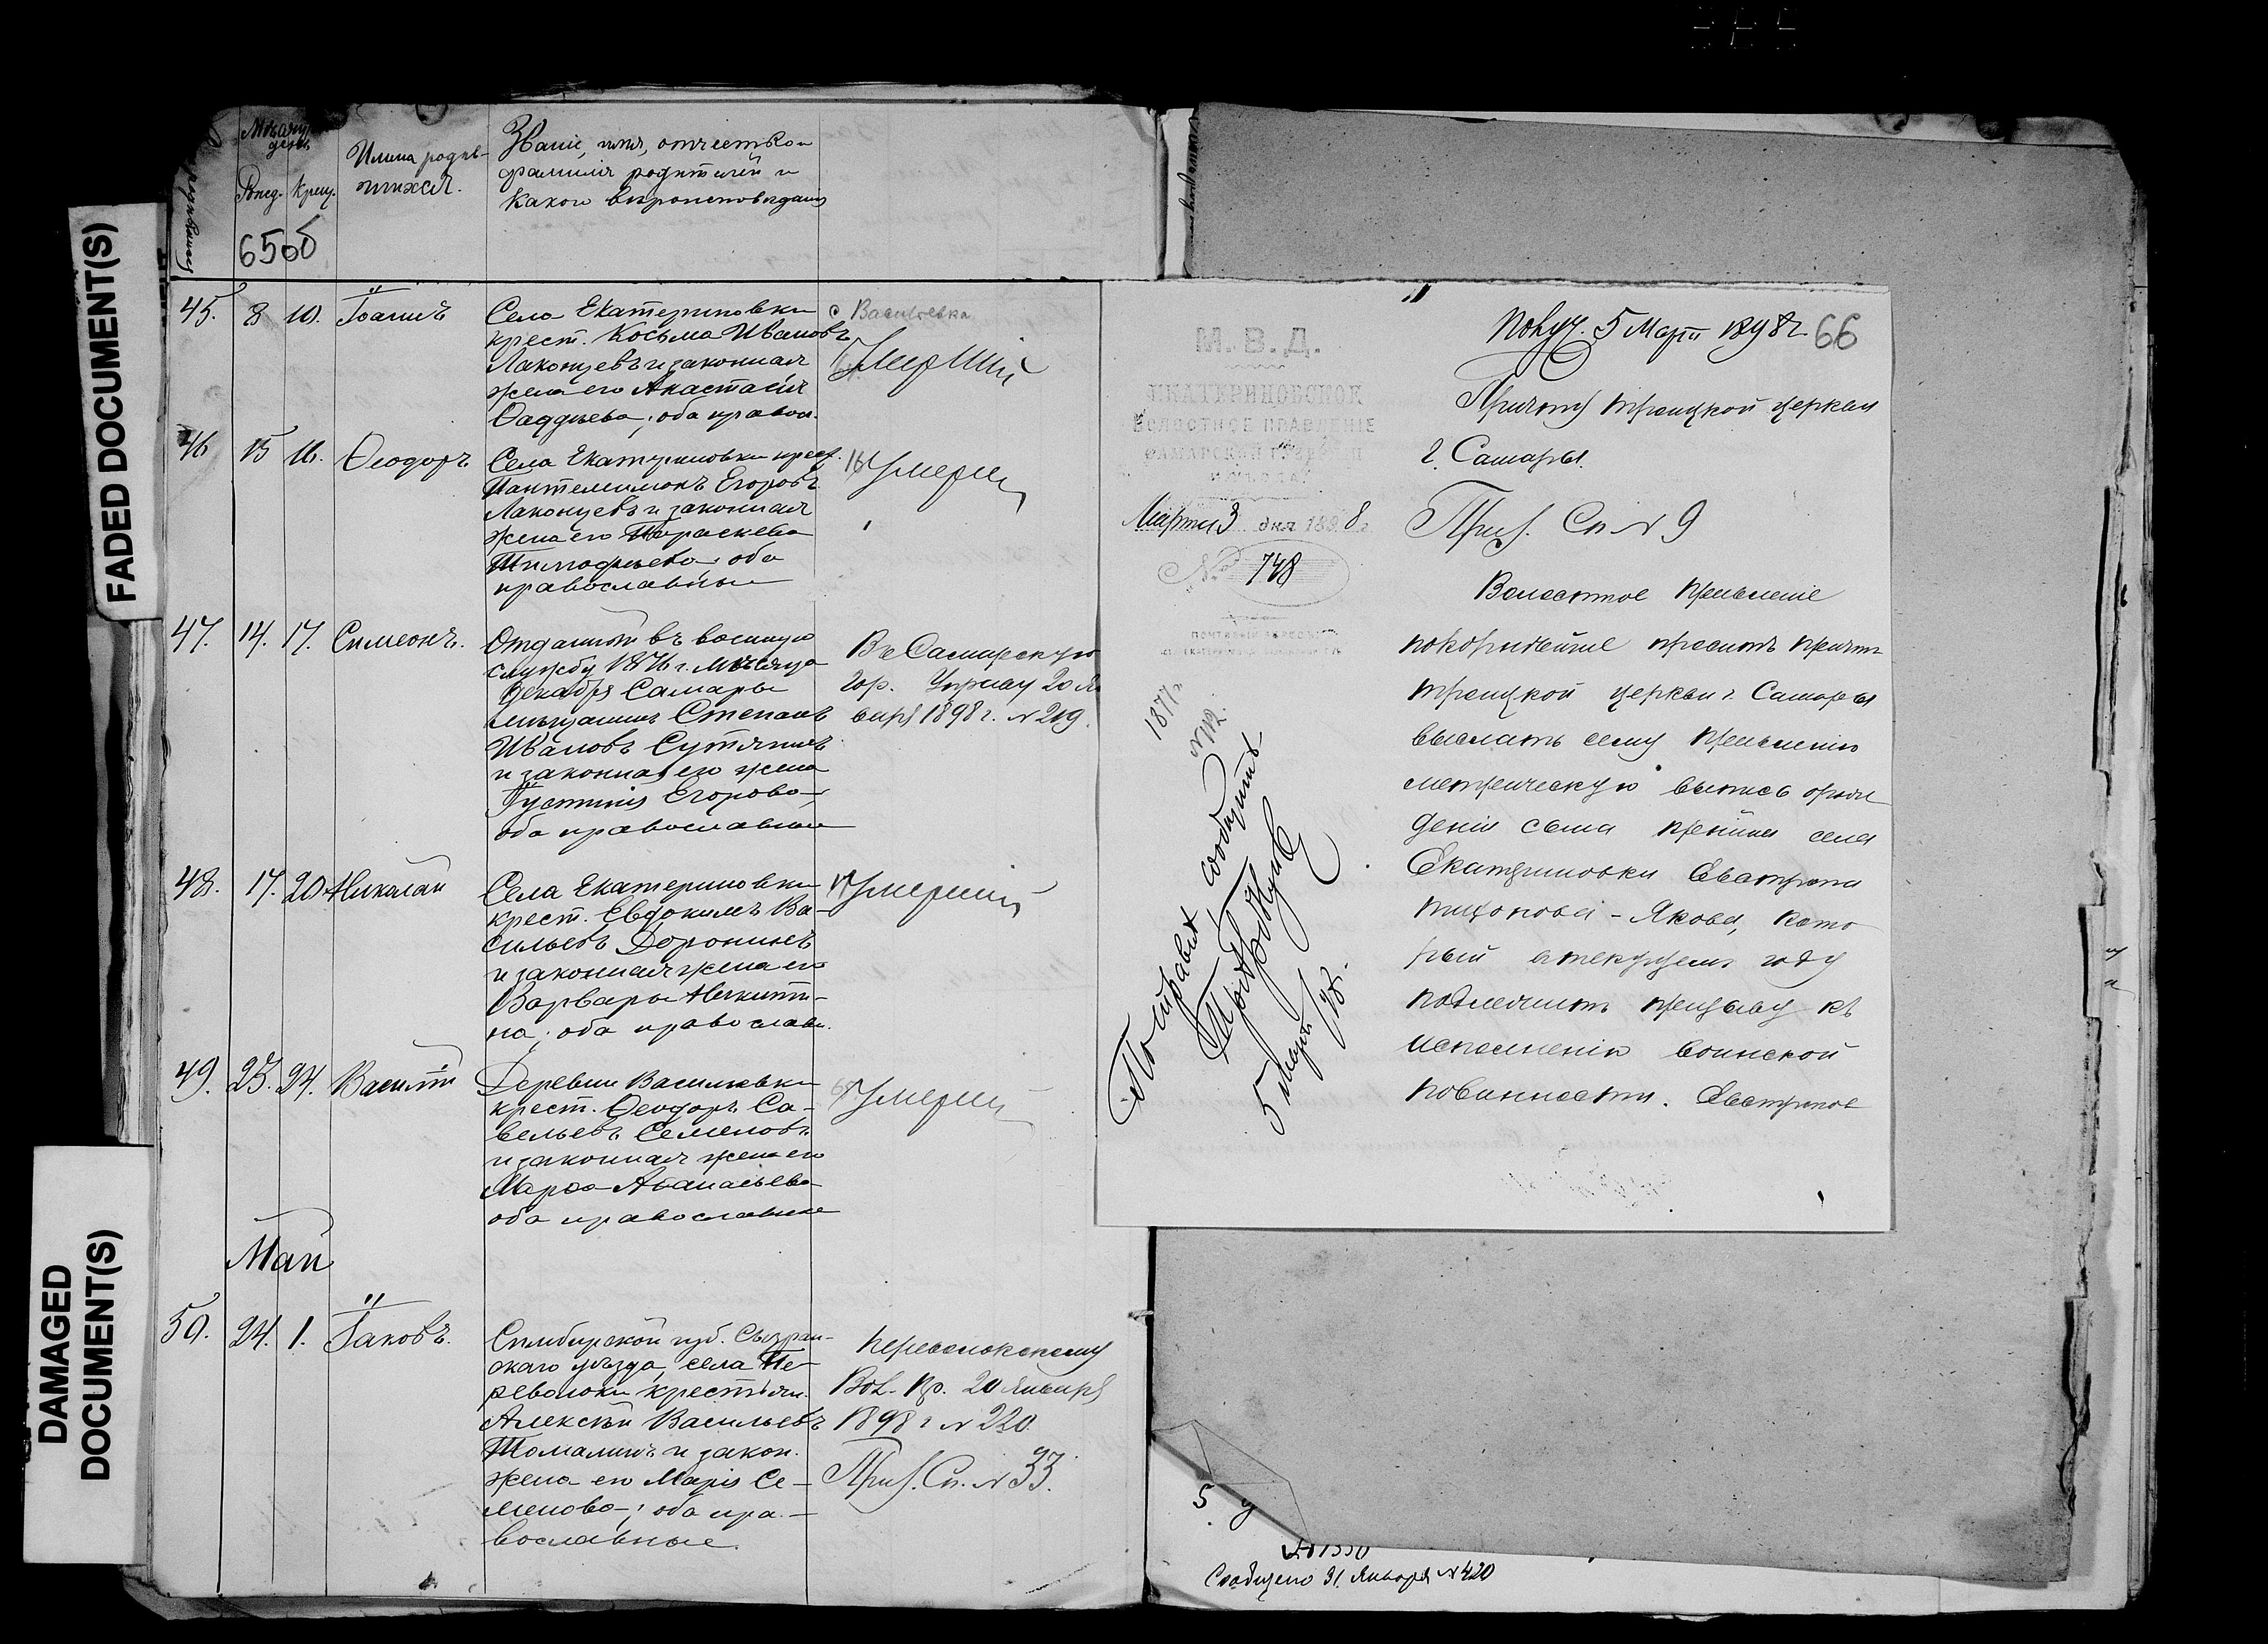 FADED DOCUMENT(S)
DAMAGED
DOCUMENT(S)
Рожд. Крещ.
Имена родив-
шихся.
Званіе, имя, отчество и
фамилія родителей и
какого вѣроисповѣданія
65об
45. 8 10. Іоаннъ
Села Екатериновки
крест. Косьма Ивановъ
Лаконцевъ и законная
жена его Анастасія
Ѳаддѣева; оба правос.
с Васильевка
Умершій
46 15 16. Ѳеодоръ
Села Екатериновки крест.
Пантелеимонъ Егоровъ
Лаконцевъ и законная
жена его Параскева
Тимофѣева; оба
православные
Умерш
47. 14. 17. Симеонъ.
Отданный въ военную
службу 1876 г. мѣсяца
Декабря Самары
мѣщанинъ Степанъ
Ивановъ Сутягинъ
и законная его жена
Іустинія Егорова
оба православные
Въ Самарскую
Гор. Управу 20 Ян
варя 1898 г. № 219.
48. 17. 20 Николай
Села Екатериновки
крест. Евдокимъ Ва-
сильевъ Доронинъ
и законная жена его
Варвара Никити-
на; оба православн.
Умершій
49. 23. 24. Василій
Деревни Васильевки
крест. Ѳеодоръ Са-
вельевъ Семеновъ
и законная жена его
Марѳа Аѳанасьева
оба православные
Умерш
Май
50. 24. 1. Іаковъ.
Симбирской губ. Сызран-
скаго уѣзда, села Пе-
револоки крестьян.
Алексѣй Васильевъ
и закон.
жена его Марія Се-
менова; оба пра-
вославные.
Переволокскому
Вол. Пр. 20 Января
1898 г № 220.
Приз. Сп. № 33.
М. В. Д.
ЕКАТЕРИНОВСКОЕ
ВОЛОСТНОЕ ПРАВЛЕНІЕ
САМАРСКОЙ ГУБЕРНІИ
Марта 3 дня 1898 г.
№ 748
1877 г.
Получ. 5 Марта 1898 г. 66
Причту Троицкой церкви
г. Самары.
Приз. Сп № 9
Волостное Правленіе
покорнѣйше проситъ причтъ
Троицкой церкви г. Самары
выслать сему Правленію
метрическую выпись о рож
деніи сына кр-нина села
Екатериновки Евстропа
Тихонова - Якова, кото
рый въ текущемъ году
подлежитъ призыву къ
исполненію воинской
повинности. Евстропов
сообщить
5 марта 98.
5.
Сообщено 31 Января № 420